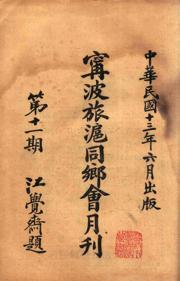 中華民國十三年六月出版
甯波旅滬同鄉會月刊
第十一期
江覺齋題